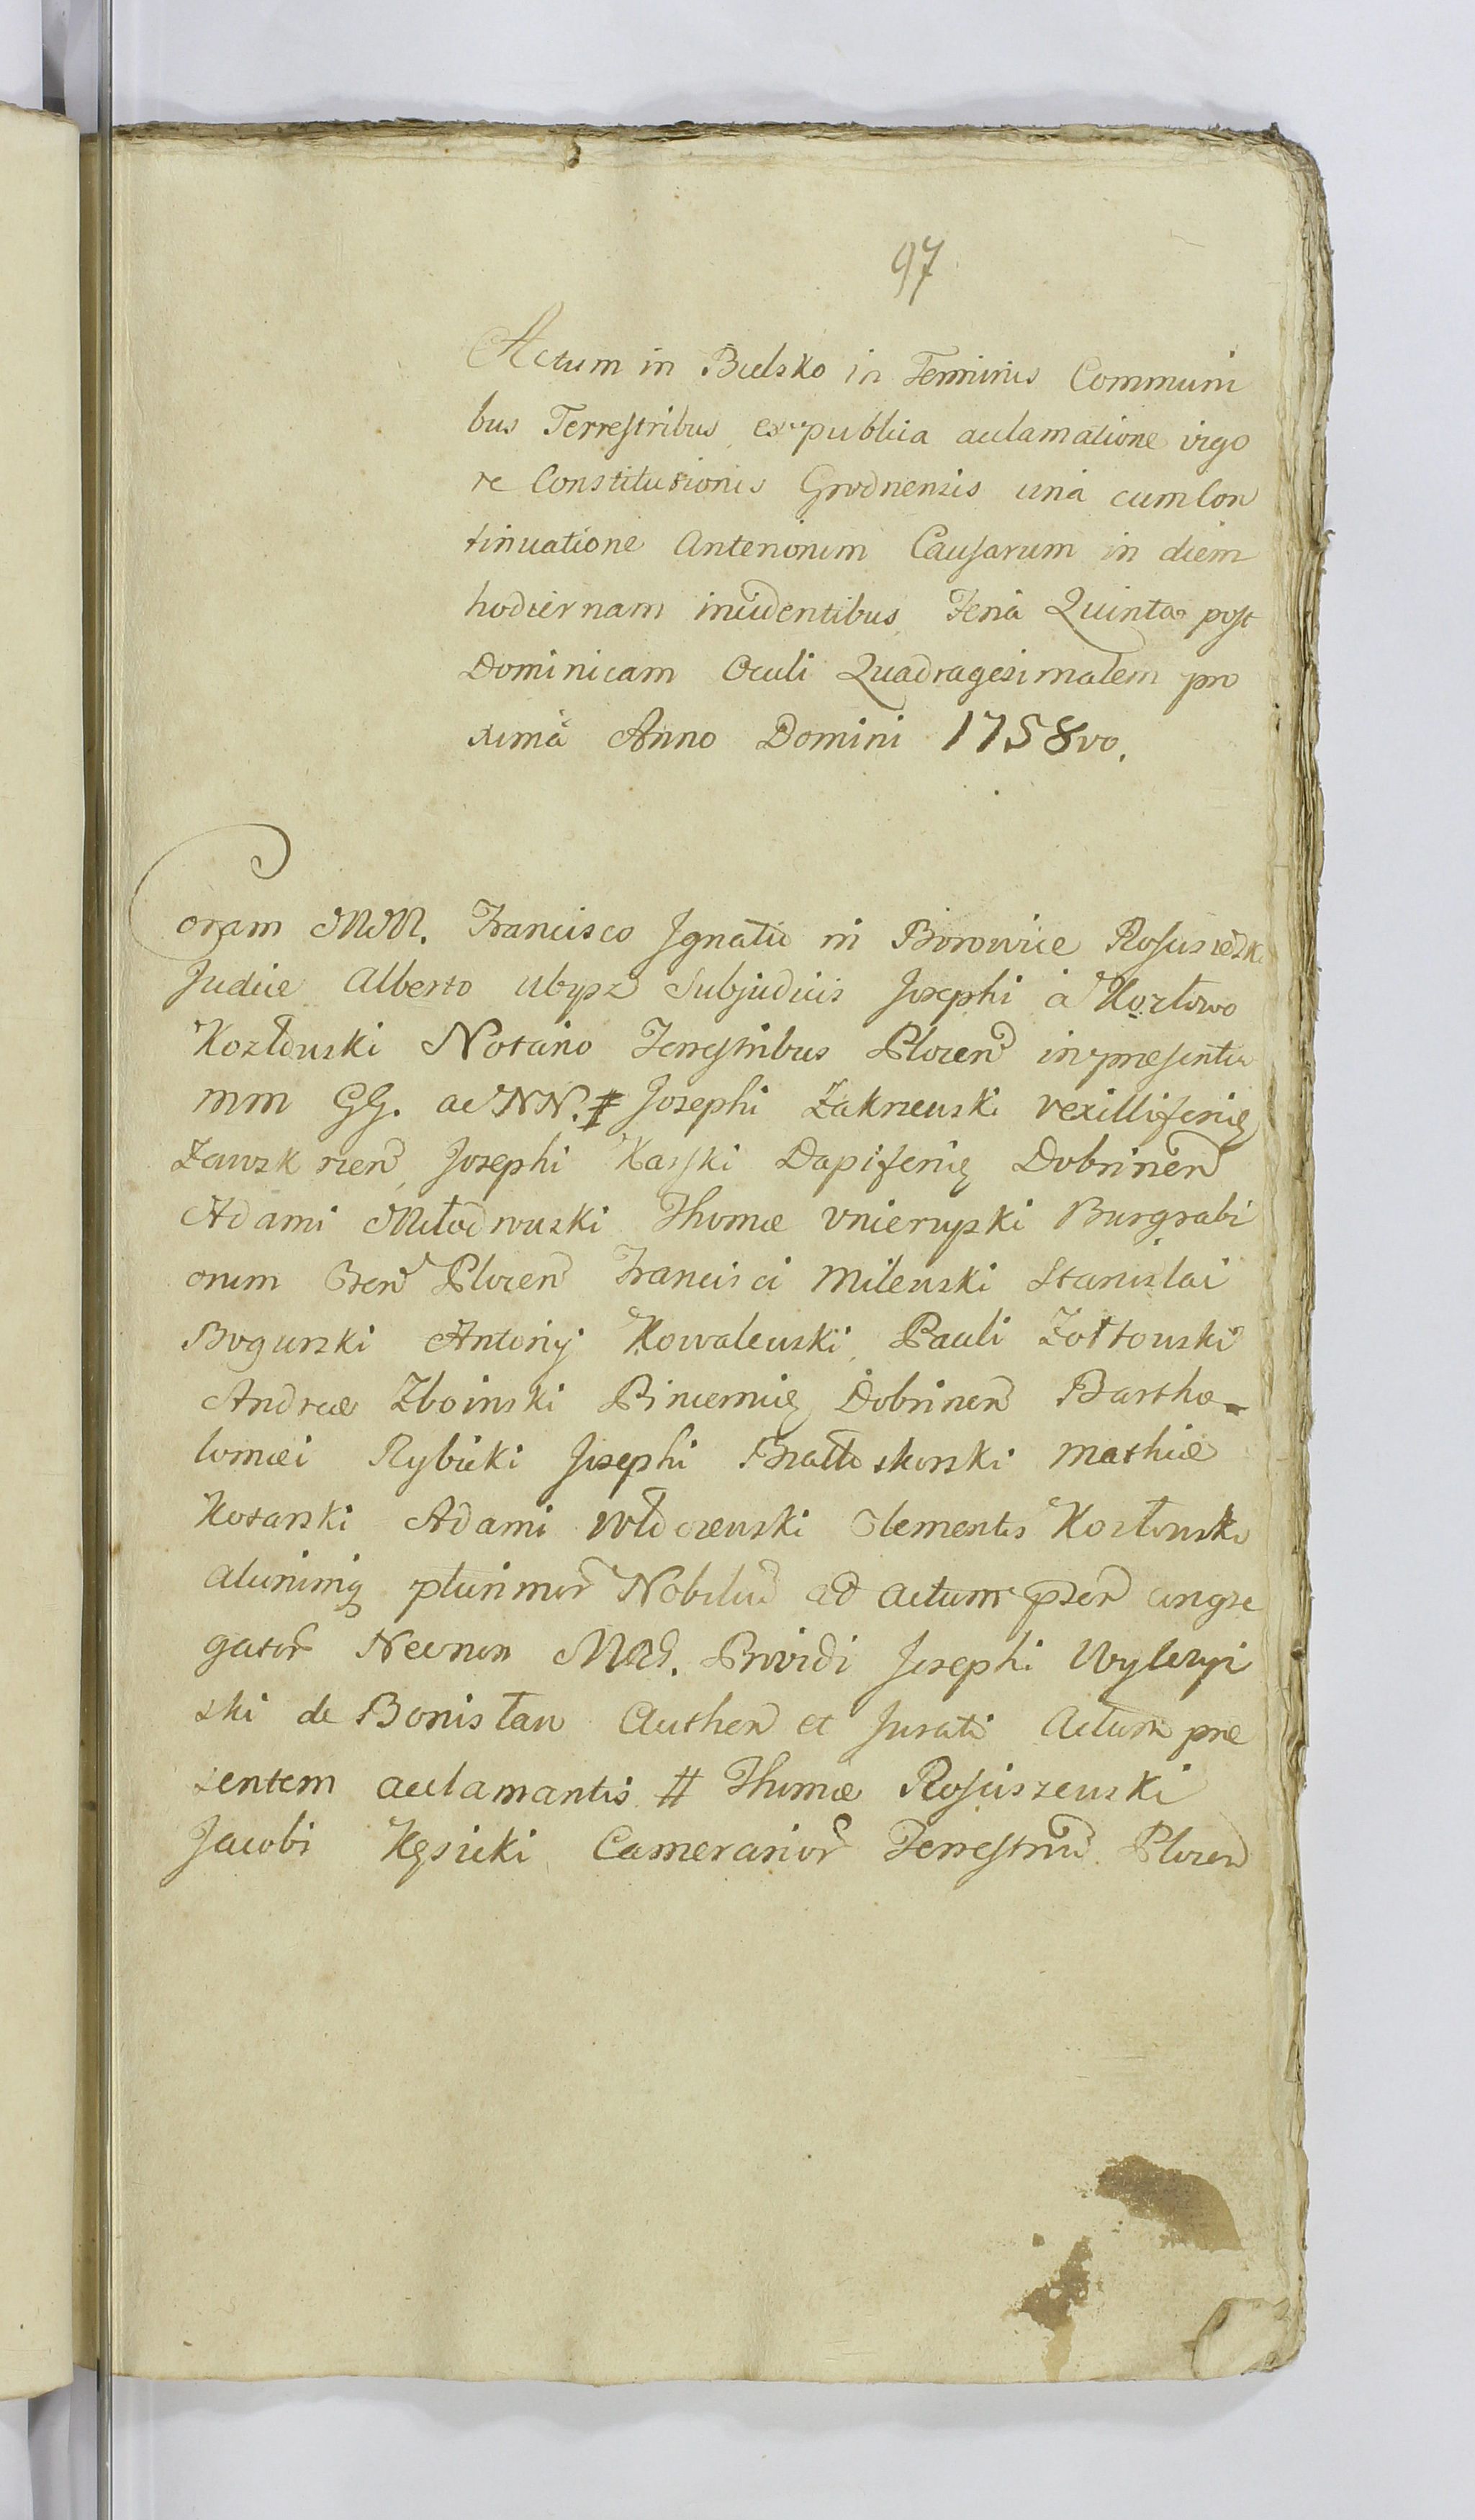 97
Actum in Bielsko in Terminis Communi
bus Terrestribus ex publica acclamatione vigo
re Constitutionis Grodnensis una cum Con
tinuatione Anteriorum Causarum in diem
hodiernam incidentibus Feria Quinta post
Dominicam Oculi Quadragesimalem pro
xima Anno Domini 1758vo.
Coram MM. Francisco Ignatio in Borowice Rosciszewsk
Judice Alberto Ubysz Subjudicis Josephi à Kozłowo
Kozłowski Notario Terrestribus Plocen in præsentia
mm GG. ac NN. # Josephi Zakrzewski vexilliferię
Zawskrzen Josephi Karski Dapiferię Dobrinen
Adami Młodowski Thomæ Unierzyski Burgrabi
orum Plocen Francisci Milewski Stanislai
Bogurski Antonij Kowalewski Pauli Zołtowski
Andreæ Zboinski Pincernię Dobrinen Bartho-
lomæi Rybicki Josephi Brattoskorski Mathiæ
Kotarski Adami Włoczewski Clementis Kozłowski
aliorumq plurimor Nobiliu ad actum pzen congre
gator Necnon Providi Josephi Wyleży
ski de Bonisław Authen et Jurati Actum præ
sentem acclamantis # Thomæ Rosciszewski
Jacobi Kęsicki Camerarior Terrestriu Plocen